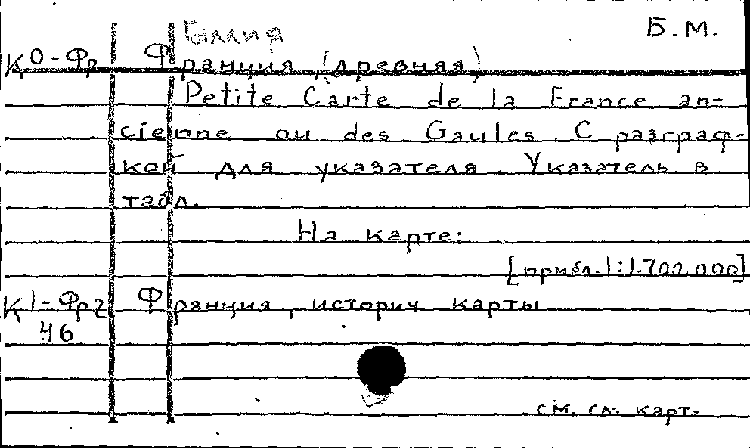 Галлия Б.М.
К0-Фр Франция (древняя)
Petite Carte de la France an-
cienne ou des Gaules С разграф-
кой для указателя. Указатель в
табл.
На карте:
[прибл. 1:1.700.000]
К1-Фр2 Франция, историч карты
46
см. сл. карт.